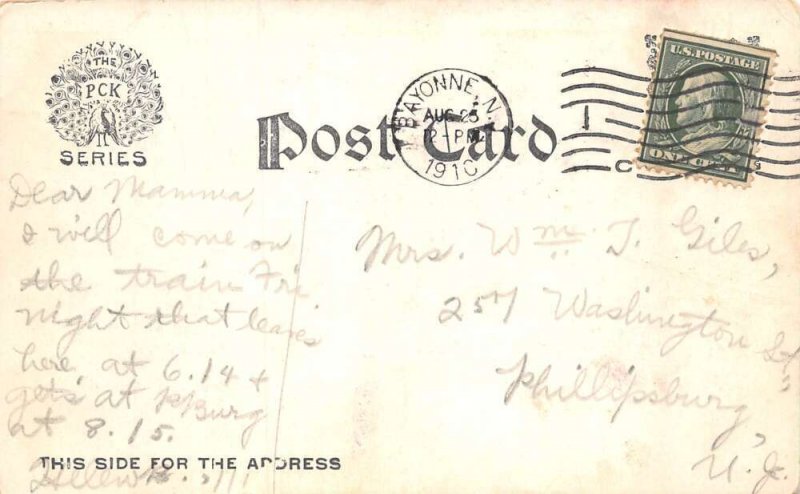 THE
PCK
SERIES
Post Card
BAYONNE, N.
AUG 25
12-PM
1910
U.S. POSTAGE
ONE CENT
1
C
Dear Mamma,
I will come on
the train Fri.
night that leaves
here at 6.14 &
gets at P'Burg
at 8.15.
Mrs. Wm. T. Giles,
257 Washington St,
Phillipsburg,
N.J.
THIS SIDE FOR THE ADDRESS